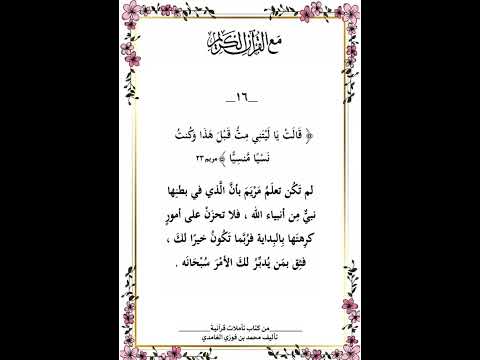 مَعَ القُرْآنِ الكَرِيم
__١٦__
﴿ قَالَتْ يَا لَيْتَنِي مِتُّ قَبْلَ هَذَا وَكُنتُ
نَسْيًا مَّنسِيًّا ﴾ مريم ٢٣
لم تَكُن تعلَمُ مَرْيَمَ بأنَّ الَّذي في بطنِها
نبيٌّ مِن أنبياء الله ، فلا تحزَنْ على أمورٍ
كرِهتَها بِالبِداية فرُبَّما تَكُونُ خيرًا لكَ ،
فثِق بمَن يُدبِّرُ لكَ الأَمْرَ سُبْحَانَه .
________من كتاب تأملات قرآنية________
تأليف محمد بن فوزي الغامدي